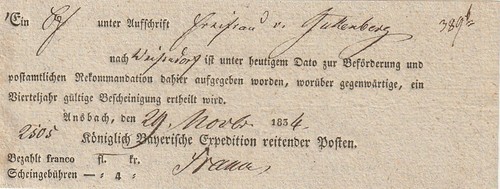 Ein Bf unter Aufschrift Freifrau v. Guttenberg 389
nach Weisendorf ist unter heutigem Dato zur Beförderung und
postamtlichen Rekommandation dahier aufgegeben worden, worüber gegenwärtige, ein
Vierteljahr gültige Bescheinigung ertheilt wird.
Ansbach, den 29 Novbr 1834.
2505 Königlich Bayerische Expedition reitender Posten.
Bezahlt franco fl. kr.
Scheingebühren — „ 4